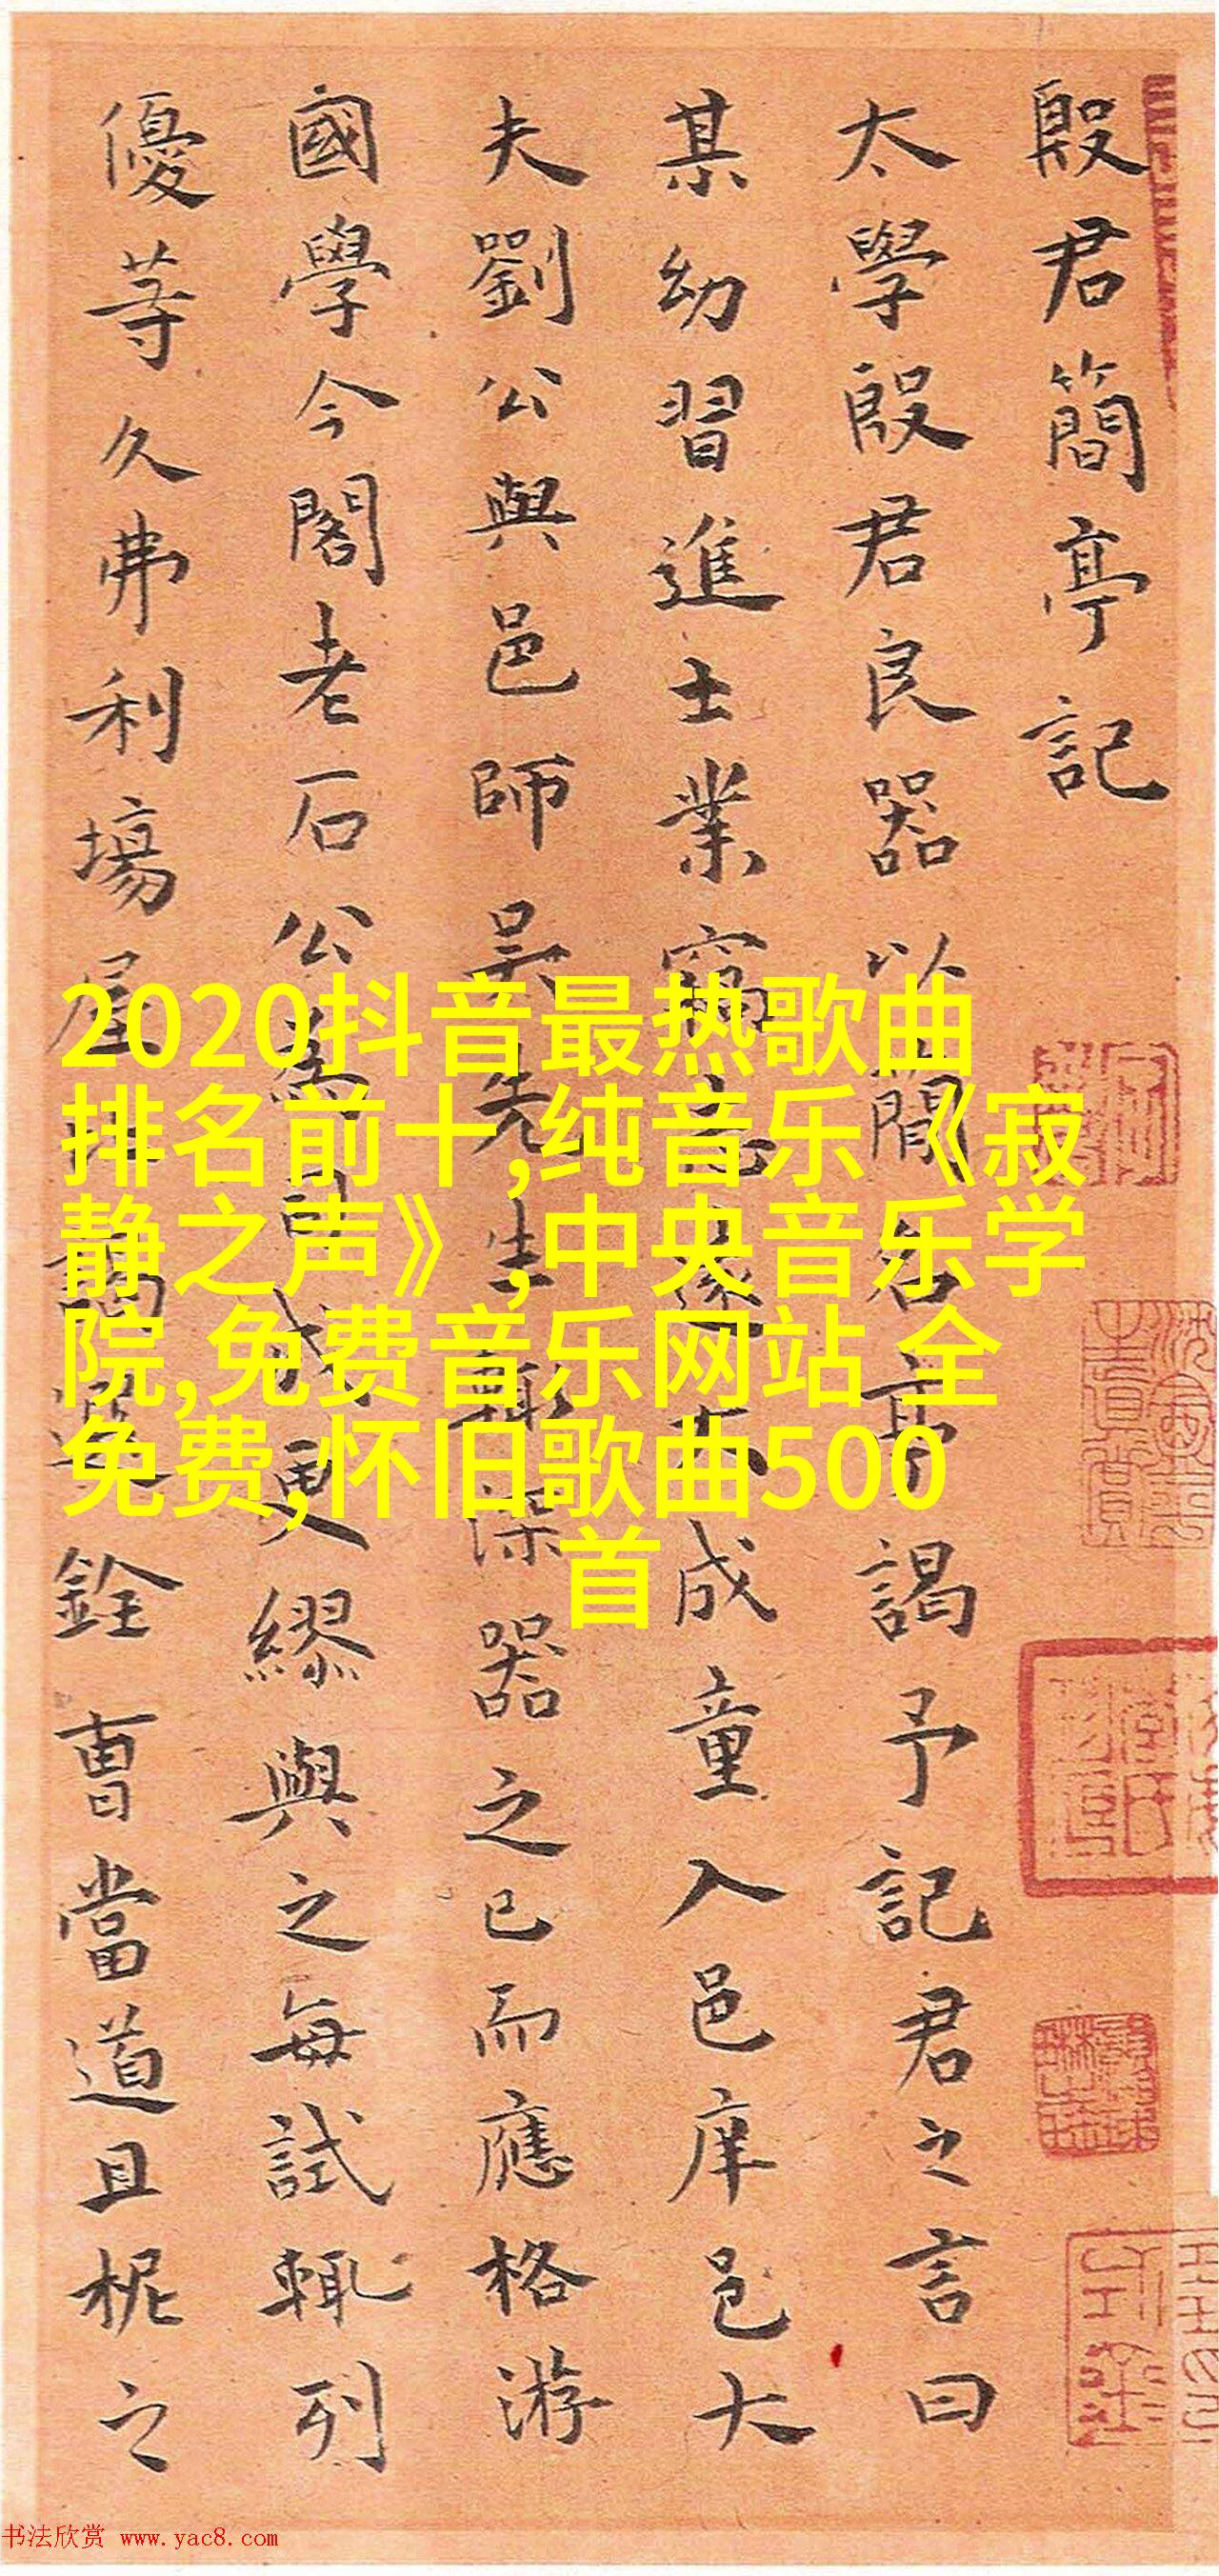 殷君簡亭記
太學殷君良器以簡名亭謁予記君之言曰
某幼習進士業竊成童入邑庠邑大
夫劉公與邑師吳先生輙深器之已而應格游
國學今閣老石公為司成更繆與之每試輒列
優等久弗利場屋比謁選銓曹當道且柅之
2020抖音最热歌曲
排名前十,纯音乐《寂
静之声》,中央音乐学
院,免费音乐网站 全
免费,怀旧歌曲500
首
书法欣赏 www.yac8.com